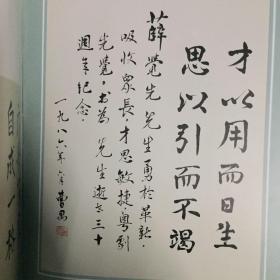 才以用而日生
思以引而不竭
薛覺先先生勇於革新，
吸收衆長，才思敏捷，粤劇
先覺，书为先生逝世三十
週年纪念。
一九八六年 曹禺
自成一格